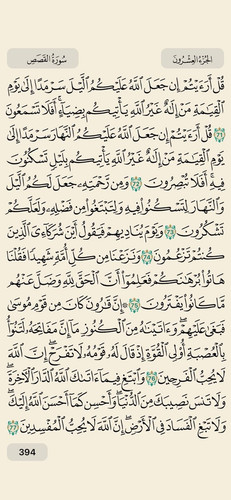 الجزء العشرون
سورة القصص
قُلْ أَرَءَيْتُمْ إِن جَعَلَ ٱللَّهُ عَلَيْكُمُ ٱلَّيْلَ سَرْمَدًا إِلَىٰ يَوْمِ
ٱلْقِيَٰمَةِ مَنْ إِلَٰهٌ غَيْرُ ٱللَّهِ يَأْتِيكُم بِضِيَآءٍ ۖ أَفَلَا تَسْمَعُونَ
٧١ قُلْ أَرَءَيْتُمْ إِن جَعَلَ ٱللَّهُ عَلَيْكُمُ ٱلنَّهَارَ سَرْمَدًا إِلَىٰ
يَوْمِ ٱلْقِيَٰمَةِ مَنْ إِلَٰهٌ غَيْرُ ٱللَّهِ يَأْتِيكُم بِلَيْلٍ تَسْكُنُونَ
فِيهِ ۖ أَفَلَا تُبْصِرُونَ ٧٢ وَمِن رَّحْمَتِهِۦ جَعَلَ لَكُمُ ٱلَّيْلَ
وَٱلنَّهَارَ لِتَسْكُنُوا۟ فِيهِ وَلِتَبْتَغُوا۟ مِن فَضْلِهِۦ وَلَعَلَّكُمْ
تَشْكُرُونَ ٧٣ وَيَوْمَ يُنَادِيهِمْ فَيَقُولُ أَيْنَ شُرَكَآءِىَ ٱلَّذِينَ
كُنتُمْ تَزْعُمُونَ ٧٤ وَنَزَعْنَا مِن كُلِّ أُمَّةٍ شَهِيدًا فَقُلْنَا
هَاتُوا۟ بُرْهَٰنَكُمْ فَعَلِمُوٓا۟ أَنَّ ٱلْحَقَّ لِلَّهِ وَضَلَّ عَنْهُم
مَّا كَانُوا۟ يَفْتَرُونَ ٧٥ ۞ إِنَّ قَٰرُونَ كَانَ مِن قَوْمِ مُوسَىٰ
فَبَغَىٰ عَلَيْهِمْ ۖ وَءَاتَيْنَٰهُ مِنَ ٱلْكُنُوزِ مَآ إِنَّ مَفَاتِحَهُۥ لَتَنُوٓأُ
بِٱلْعُصْبَةِ أُو۟لِى ٱلْقُوَّةِ إِذْ قَالَ لَهُۥ قَوْمُهُۥ لَا تَفْرَحْ ۖ إِنَّ ٱللَّهَ
لَا يُحِبُّ ٱلْفَرِحِينَ ٧٦ وَٱبْتَغِ فِيمَآ ءَاتَىٰكَ ٱللَّهُ ٱلدَّارَ ٱلْءَاخِرَةَ ۖ
وَلَا تَنسَ نَصِيبَكَ مِنَ ٱلدُّنْيَا ۖ وَأَحْسِن كَمَآ أَحْسَنَ ٱللَّهُ إِلَيْكَ ۖ
وَلَا تَبْغِ ٱلْفَسَادَ فِى ٱلْأَرْضِ ۖ إِنَّ ٱللَّهَ لَا يُحِبُّ ٱلْمُفْسِدِينَ ٧٧
394